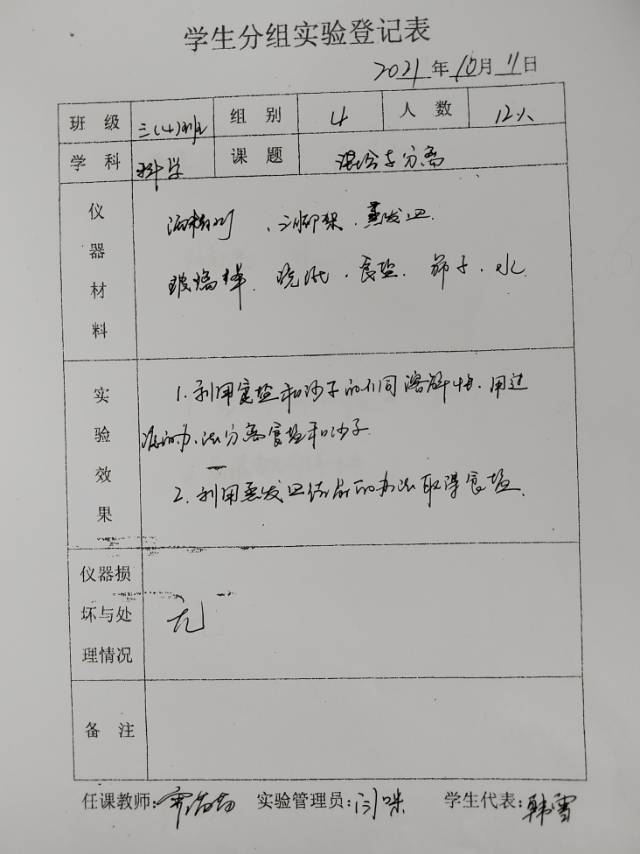 学生分组实验登记表
2021年10月11日
班级 三(4)班 组别 4 人数 12人
学科 科学 课题 混合与分离
仪器材料
酒精灯、三脚架、蒸发皿
玻璃棒、烧瓶、食盐、筛子、水
实验效果
1.利用食盐和沙子的不同溶解性,用过
滤的办法分离食盐和沙子
2.利用蒸发皿结晶的办法取得食盐
仪器损坏与处理情况 无
备注
任课教师: 实验管理员: 学生代表:韩雪